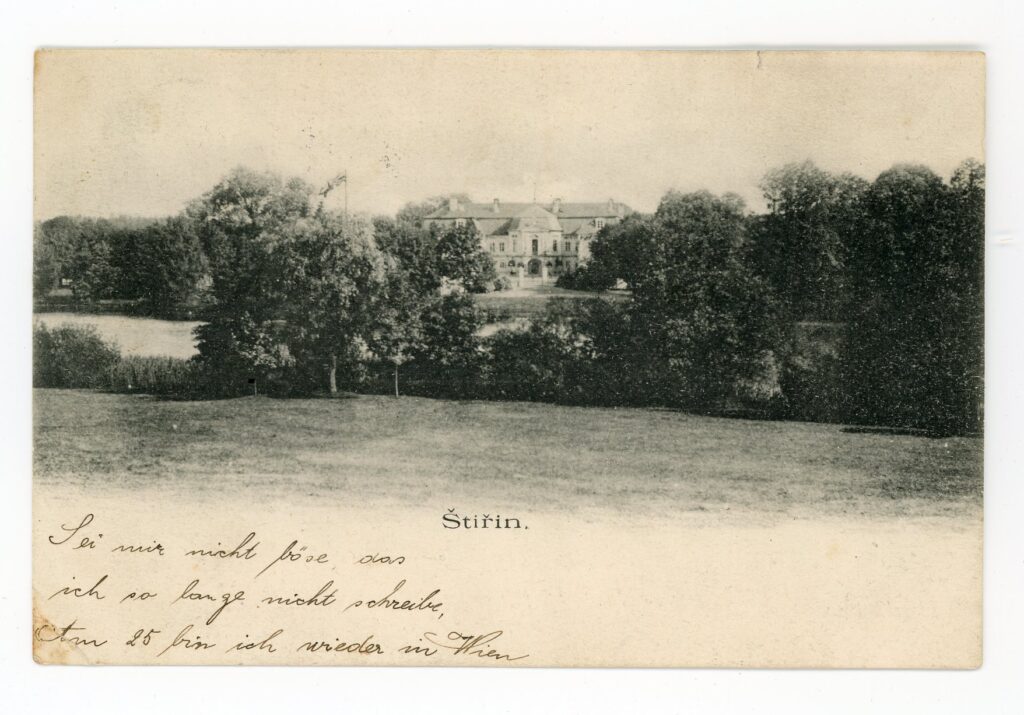 Štiřin.
Sei mir nicht böse, das
ich so lange nicht schreibe,
Am 25 bin ich wieder in Wien